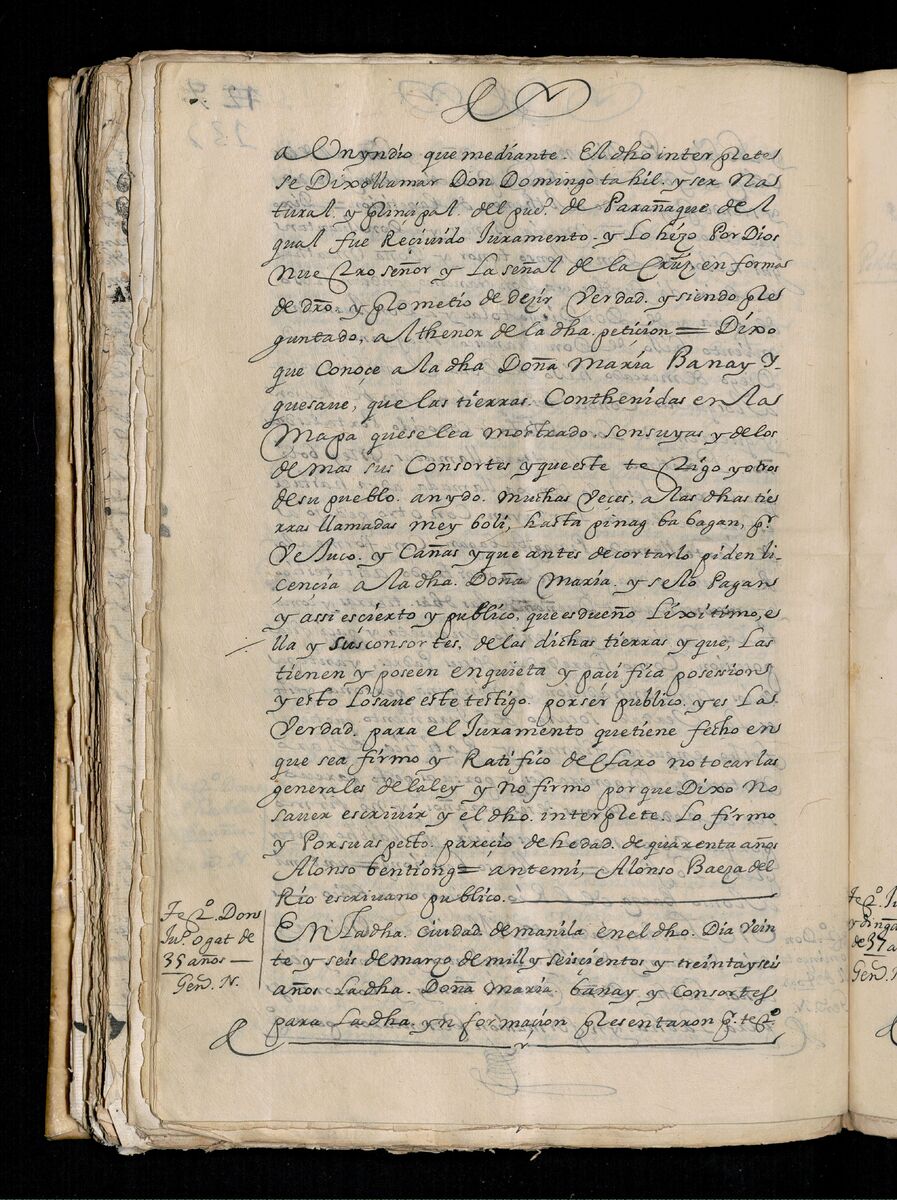 a Un yndio que mediante. El dho interplete
se Dixo llamar Don Domingo tahil. y ser Na
tural. y plinçipal. del pueo. de Parañaque del
qual fue Reçiuido Juramento. y Lo hizo Por Dios
Nuestro señor y La señal de la Cruz en forma
de dro. y plometio de dezir Verdad. y siendo ple
guntado, al thenor de la dha. petiçion = Dixo
que Conoçe a la dha Doña María Banay Y
que saue, que las tierras. Conthenidas en la
Mapa que se le a mostrado. son suyas y de los
de mas sus Consortes y que este testigo y otros
de su pueblo. an ydo. muchas Veces, a las dhas tie
rras llamadas mey boli, hasta pinag ba bagan, pr.
Vejuco. y Cañas y que antes de cortarlo piden li-
cençia a la dha. Doña María. y se lo Pagan
y assi es çierto y publico. que es dueño Lixitimo, e
lla y sus consortes, de las dichas tierras y que, Las
tienen y poseen en quieta y paçifica posesion
y esto Lo saue este testigo. por sér publico. y es La
Verdad. para el Juramento que tiene fecho en
que se a firmo y Ratifico declaro no tocarlas
generales de la ley y no firmo por que Dixo No
sauer escriuir y el dho. interplete. Lo firmo
y Por su aspecto. pareçio de hedad. de quarenta años
Alonso bentiong = ante mi, Alonso Baeza del
Río escriuano publico.
Testo. Don
Juo. ogat de
35 años —
Gend. N.
En La dha. çiudad de manila en el dho. Dia Vein
te y seis de março de mill y seisçientos y treinta y seis
años La dha. Doña María. banay y Consortes
para La dha. yn formaçion plesentaron pr. testo.